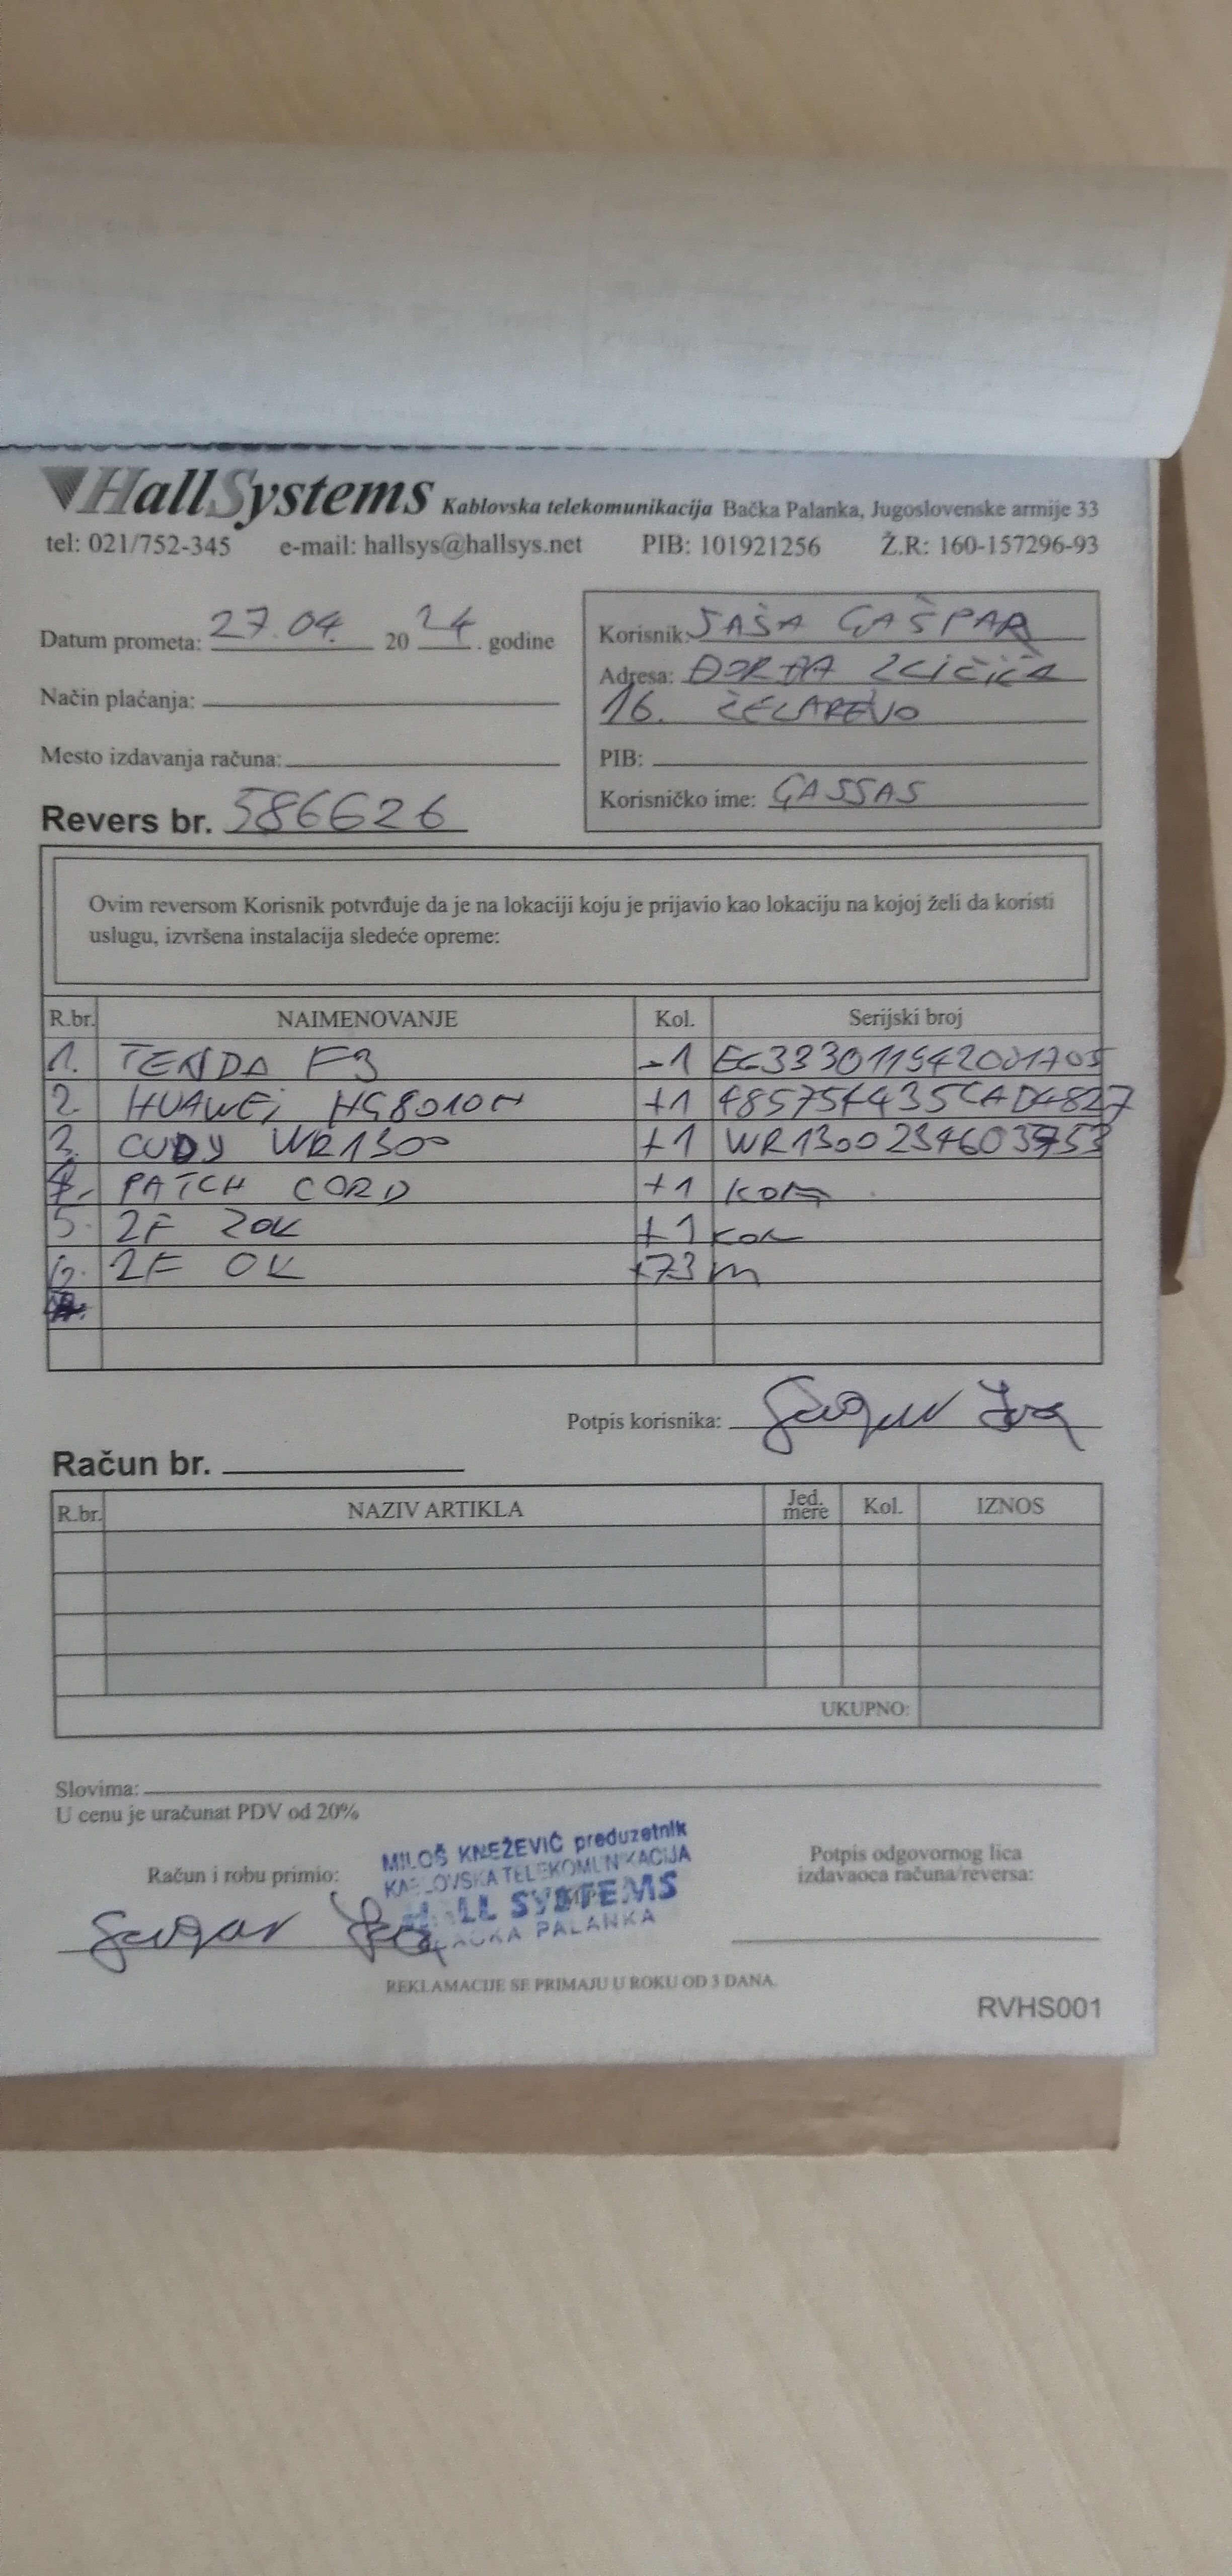 HallSystems Kablovska telekomunikacija Bačka Palanka, Jugoslovenske armije 33
tel: 021/752-345 e-mail: hallsys@hallsys.net PIB: 101921256 Ž.R: 160-157296-93
Datum prometa: 27.04. 2024. godine
Način plaćanja:
Mesto izdavanja računa:
Revers br. 586626
Korisnik: SAŠA GAŠPAR
Adresa: ĐORĐA
16. ČELAREVO
PIB:
Korisničko ime: GASSAS
Ovim reversom Korisnik potvrđuje da je na lokaciji koju je prijavio kao lokaciju na kojoj želi da koristi
uslugu, izvršena instalacija sledeće opreme:
R.br. NAIMENOVANJE Kol. Serijski broj
1. TENDA F3 -1
2. HUAWEi HG8010H +1 485754435CAD4827
3. CUDY WR1300 +1 WR1300234603753
4. PATCH CORD +1 KOM
5. 2F ZOK +1 KOM
6. 2F OK +73 m
Potpis korisnika:
Račun br.
R.br. NAZIV ARTIKLA Jed. mere Kol. IZNOS
UKUPNO:
Slovima:
U cenu je uračunat PDV od 20%
Račun i robu primio:
MILOŠ KNEŽEVIĆ preduzetnik
KABLOVSKA TELEKOMUNIKACIJA
HALL SYSTEMS
BAČKA PALANKA
Potpis odgovornog lica
izdavaoca računa/reversa:
REKLAMACIJE SE PRIMAJU U ROKU OD 3 DANA.
RVHS001